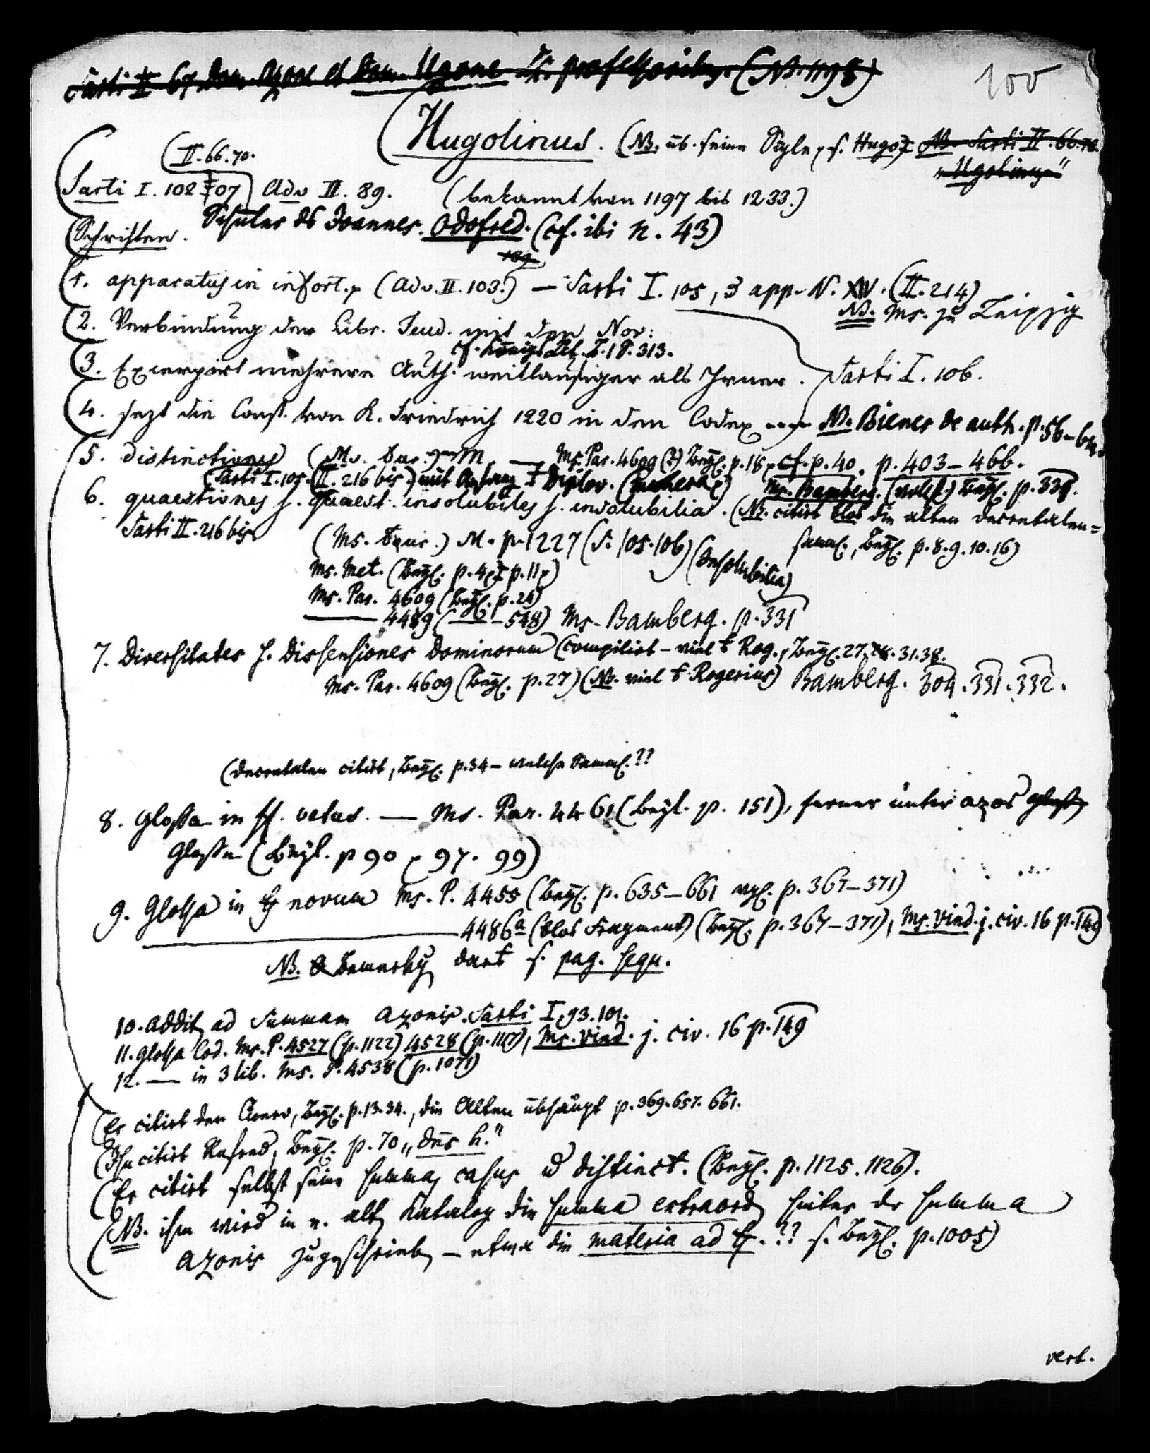 Sarti II 67 dom. Azone et dom. Ugone professoribus (NB. 1198)
100
Hugolinus. (NB. üb. seine Sigle, s. Hugo) NB. Sarti II. 66.70.
"Ugolinus"
(II. 66. 70.
Sarti I. 102–107) Adv III. 89. (bekannt von 1197 bis 1233.)
Schüler des Joannes. Odofred. (cf. ibi n. 43)
Schriften.
1. apparatus in infort. (Adv. II. 103.) — Sarti I. 105, 3 app. N. XIV. (II. 214)
NB. Ms. zu Leipzig
2. Verbindung der Libr. Feud. mit den Nov.
cf. 313.
3. Excerpirt mehrere Auth. weitläufiger als Irner. Sarti I. 106.
4. sezt die Const. von K. Friedrich 1220 in den Codex NB. Biener de auth. p. 56–64.
5. distinctiones — Ms. Par. 4609 (?) Beyl. p. 18, cf. p. 40. p. 403–466.
(Sarti I. 105. (II. 216 bis) mit Anfang Ms. Bamberg. p. 331.
6. quaestiones s. quaest. insolubiles s. insolubilia. (NB. citirt blos die alten Decretalen=
Sarti II. 216 bis (Ms. ) M. p. 1227 (S. 105. 106) (Insolubilia) samml., Beyl. p. 8. 9. 10. 16)
Ms. Met. (Beyl. p. 4, p. 11,)
Ms. Par. 4609 (Beyl. p. 24)
4489 (— 548) Ms. Bamberg. p. 331
7. Diversitates s. Dissensiones Dominorum (compilirt – viel + Rog., Beyl. 27. 28. 31. 38.
Ms. Par. 4609 (Beyl. p. 27) (NB. viel + Rogerius) Bamberg. 304. 331. 332.
(Decretalen citirt, Beyl. p. 34 – welche Samml. ??
8. Glossa in ff. vetus. — Ms. Par. 4461 (Beyl. p. 151), ferner unter azos
Glossen (Beyl. p 90, 97. 99)
9. Glossa in ff novum Ms. P. 4455 (Beyl. p. 635–661 vgl. p. 367–371)
4486a (blos Fragment) (Beyl. p. 367–371), Ms. Vind. j. civ. 16 p. 149
NB. Bemerkg dort s. pag. sequ.
10. Addit. ad Summam Azonis. Sarti I. 93. 101.
11. Glossa Cod. Ms. P. 4527 (p. 1122) 4528 (p. 1117), Ms. Vind. j. civ. 16 p. 149
12. — in 3 lib. Ms. P. 4538 (p. 1071)
(Er citirt den Irner, Beyl. p. 13. 34., die Alten überhaupt p. 369. 657. 661.
(Ihn citirt Rofred, Beyl. p. 70 „dns h."
(Er citirt selbst seine summa, casus u distinct. (Beyl. p. 1125. 1126).
(NB. ihm wird in e. alt. Katalog die summa extraord. hinter der summa
Azonis zugeschrieben – etwa die materia ad ff. ?? s. Beyl. p. 1005)
vert.